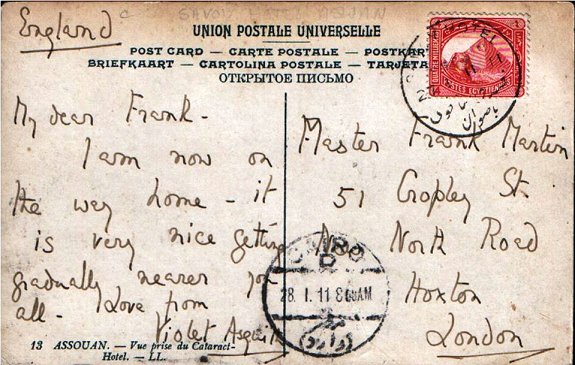 England
UNION POSTALE UNIVERSELLE
POST CARD — CARTE POSTALE — POSTKART
BRIEFKAART — CARTOLINA POSTALE — TARJETA
ОТКРЫТОЕ ПИСЬМО
My dear Frank -
I am now on
the way home - it
is very nice getting
gradually nearer you
all - Love from
Violet Asquith
13 ASSOUAN. — Vue prise du Cataract-
Hotel. — LL.
POSTES EGYPTIENNES
Master Frank Martin
51 Cropley St.
New North Road
Hoxton
London
CAIRO
D
28. I. 11 8 AM